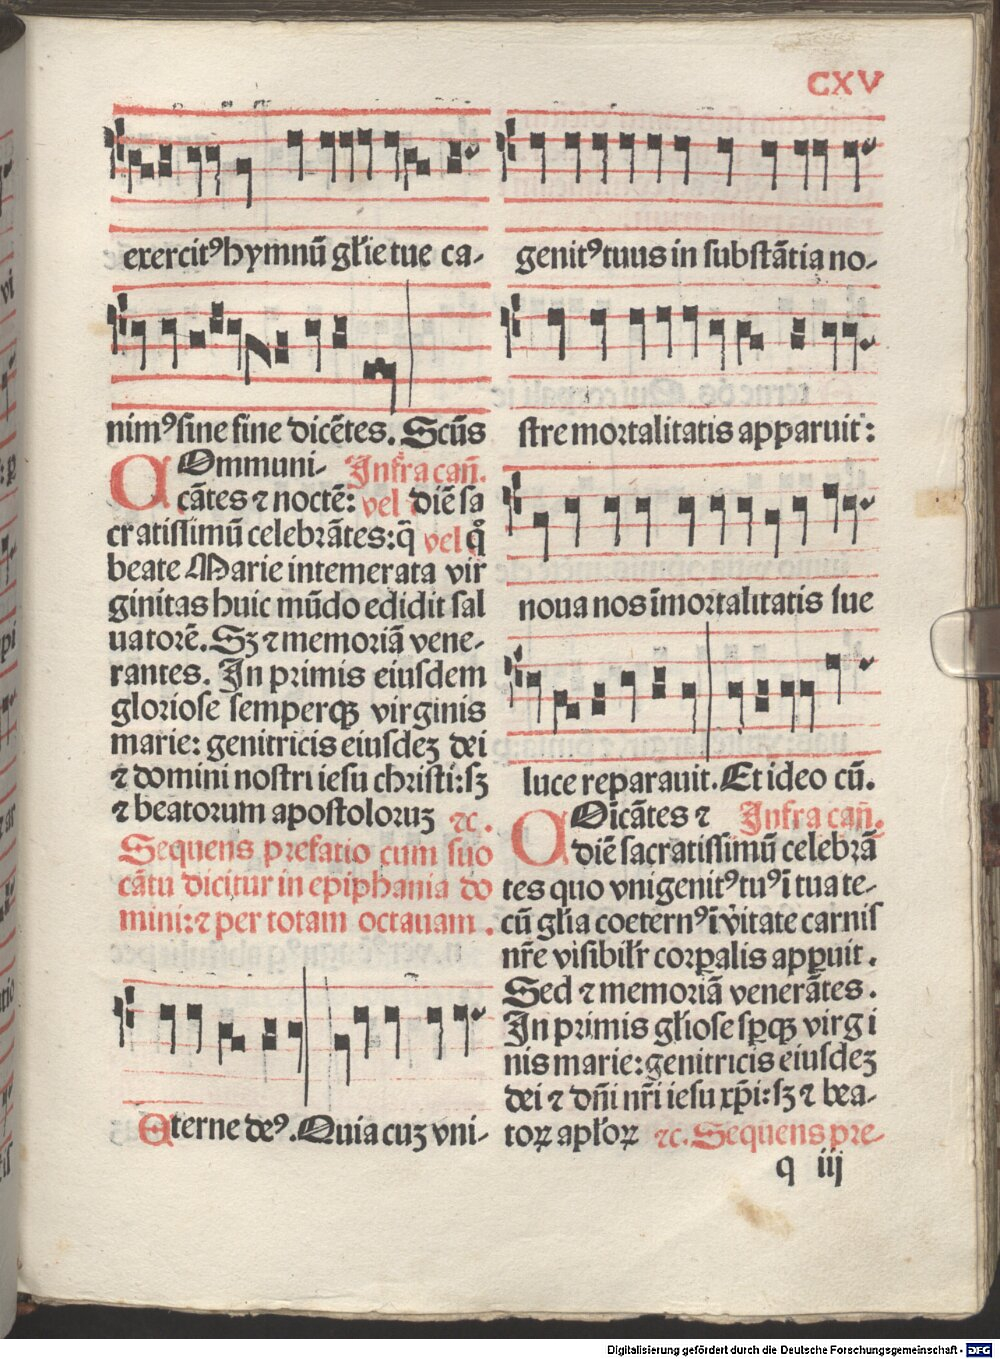 CXV
exercitꝰ hymnū gl'ie tue ca-
nimꝰ sine fine dicētes. Scūs
Ommuni- Infra cañ.
cātes ⁊ noctē: vel diē sa
cratissimū celebrātes: q̄ vel
beate Marie intemerata vir
ginitas huic mūdo edidit sal
uatorē. Sꝫ ⁊ memoriā vene-
rantes. In primis eiusdem
gloriose semperqꝫ virginis
marie: genitricis eiusdeꝫ dei
⁊ domini nostri iesu christi: sꝫ
⁊ beatorum apostoloruꝫ ⁊c.
Sequens prefatio cum suo
cātu dicitur in epiphania do
mini: ⁊ per totam octauam.
Eterne deꝰ. Quia cuꝫ vni-
genitꝰ tuus in substātia no-
stre mortalitatis apparuit:
noua nos īmortalitatis sue
luce reparauit. Et ideo cū.
Cōicātes ⁊ Infra cañ.
diē sacratissimū celebrā
tes quo vnigenitꝰ tuꝰ ī tua te-
cū gl'ia coeternꝰ ī v̓itate carnis
nr̄e visibilr̄ corꝑalis apꝑuit.
Sed ⁊ memoriā venerātes.
In primis gl'iose sꝑqꝫ virgi
nis marie: genitricis eiusdeꝫ
dei ⁊ dn̄i nr̄i iesu xp̄i: sꝫ ⁊ bea-
toꝝ apl'oꝝ ⁊c. Sequens pre-
q iij
Digitalisierung gefördert durch die Deutsche Forschungsgemeinschaft - DFG